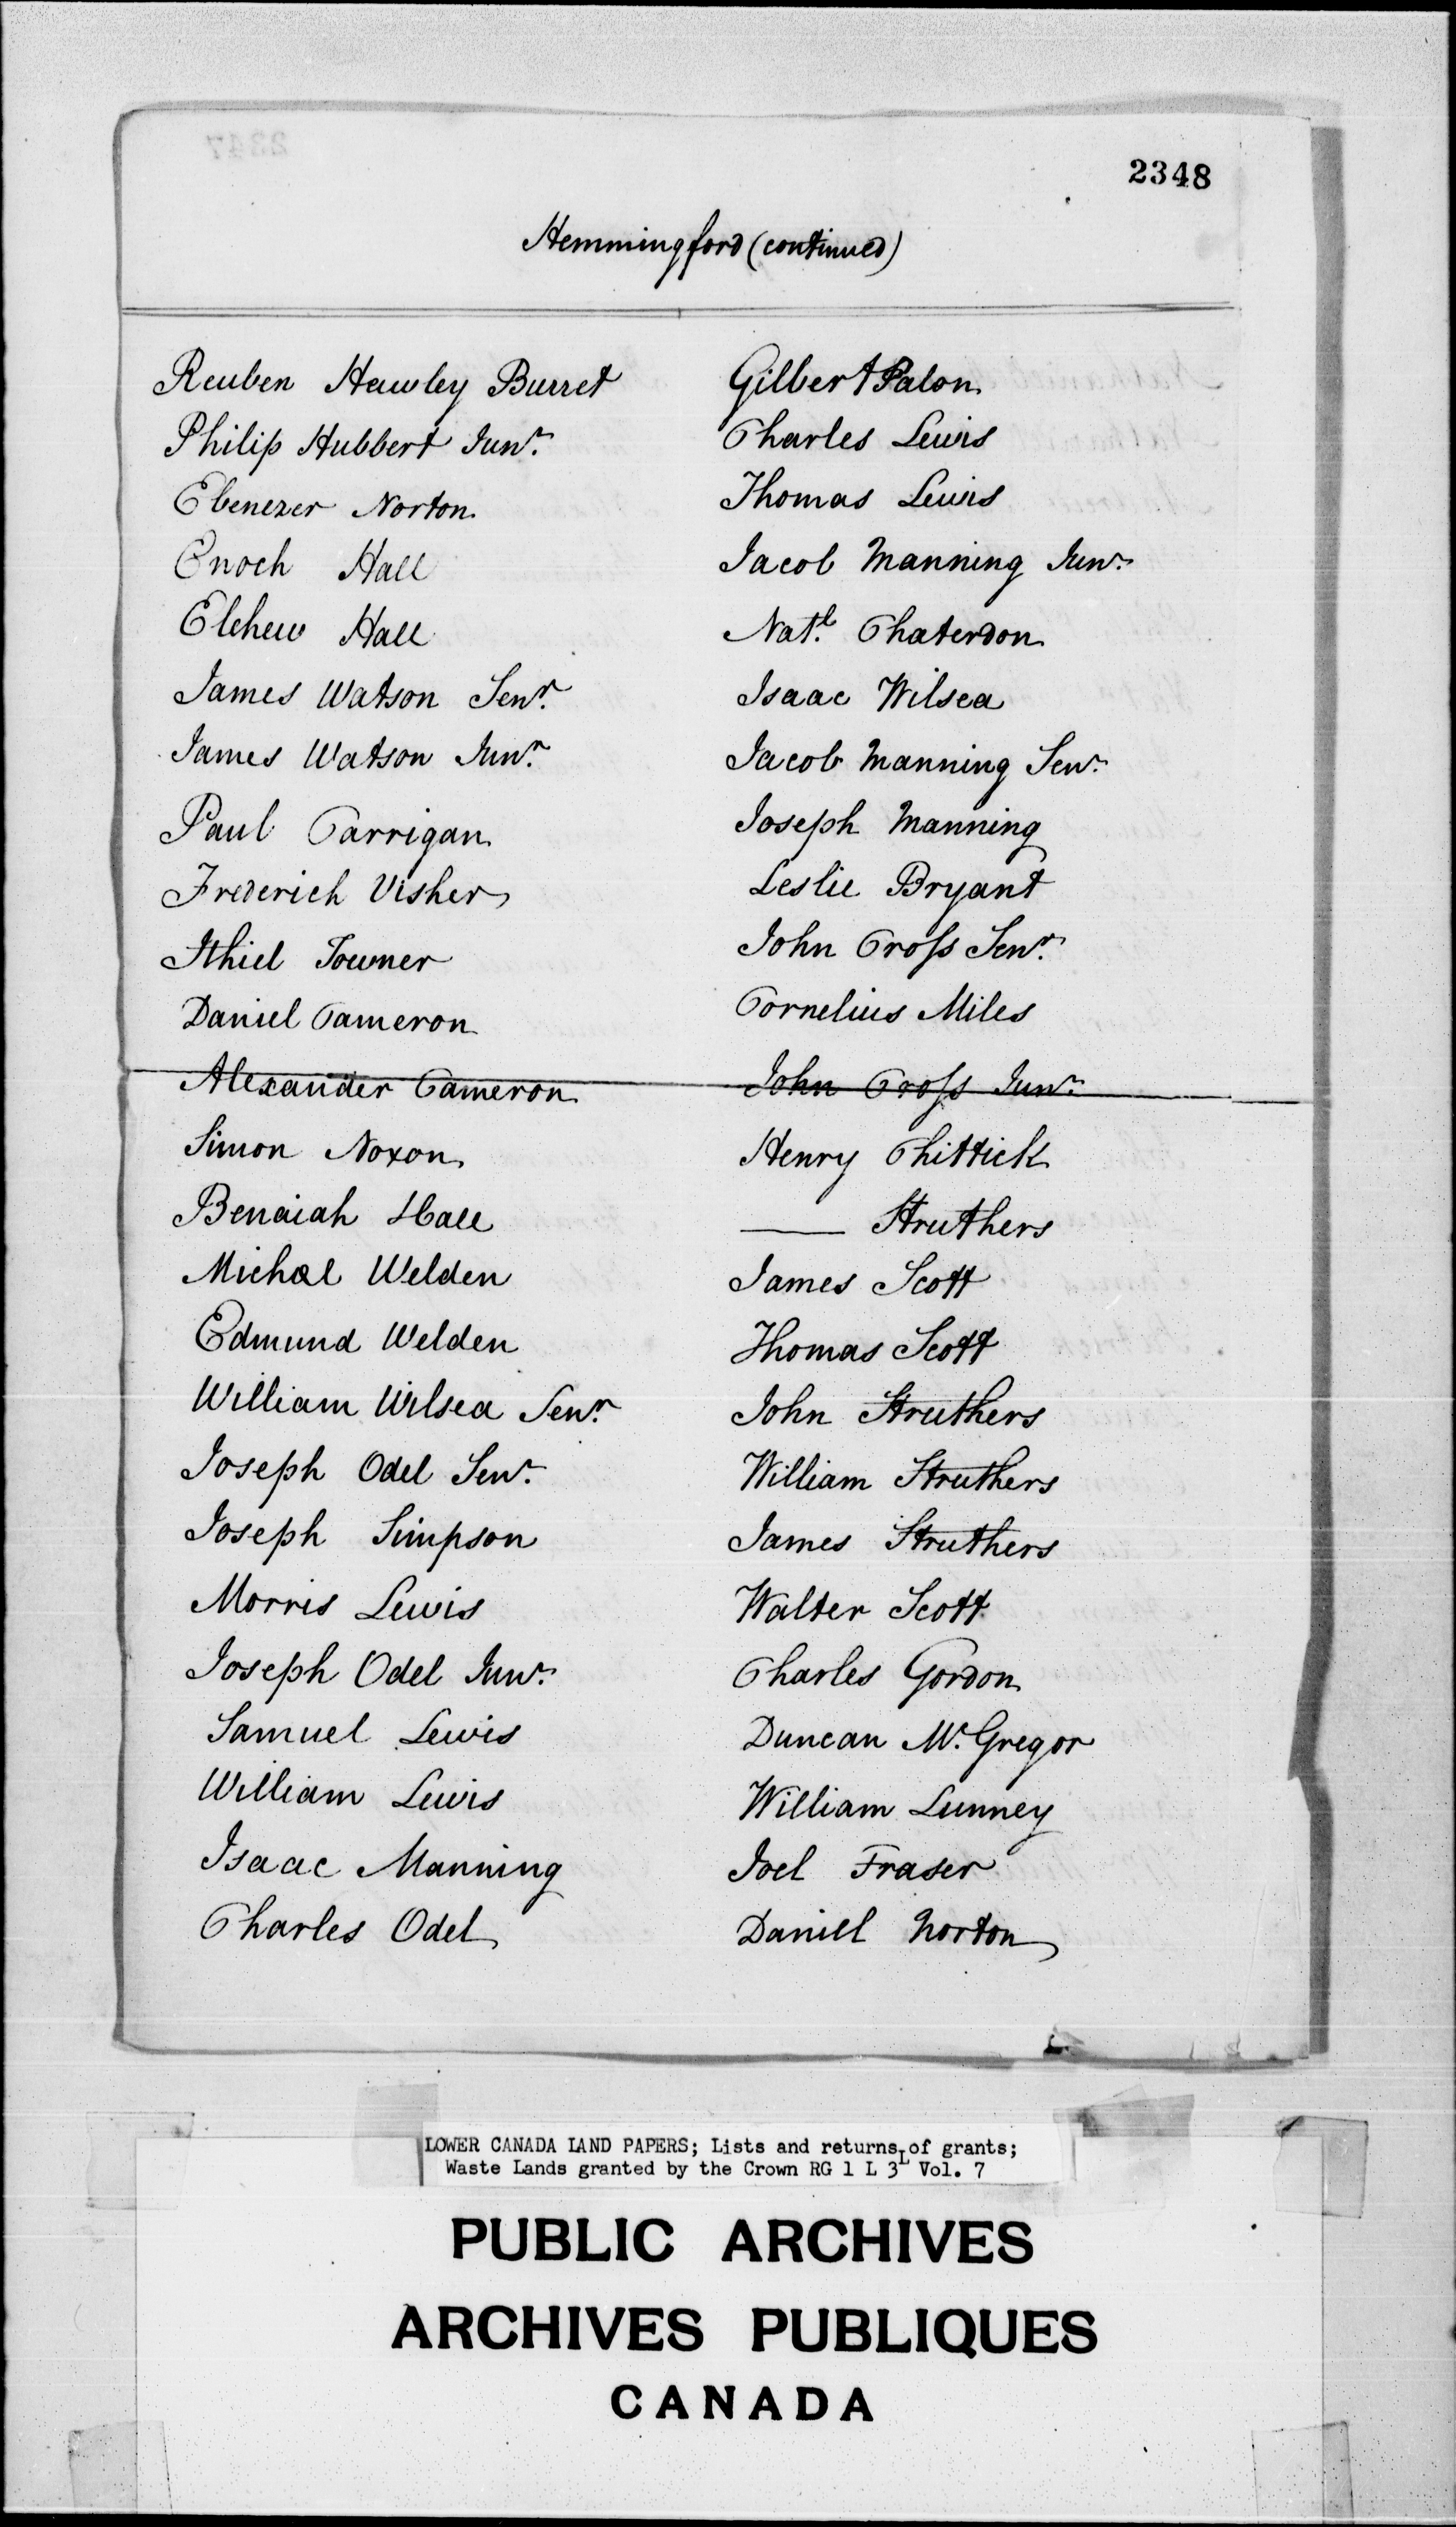 2348
Hemmingford (continued)
Reuben Hawley Burret
Philip Hubbert Junr.
Ebenezer Norton
Enoch Hall
Elehew Hall
James Watson Senr.
James Watson Junr.
Paul Carrigan
Frederich Visher
Ithiel Towner
Daniel Cameron
Alexander Cameron
Simon Noxon
Benaiah Hall
Michael Welden
Edmund Welden
William Wilsea Senr.
Joseph Odel Senr.
Joseph Simpson
Morris Lewis
Joseph Odel Junr.
Samuel Lewis
William Lewis
Isaac Manning
Charles Odel
Gilbert Palon
Charles Lewis
Thomas Lewis
Jacob Manning Junr.
Natl. Chaterdon
Isaac Wilsea
Jacob Manning Senr.
Joseph Manning
Leslie Bryant
John Cross Senr.
Cornelius Miles
John Cross Junr.
Henry Chittick
—— Struthers
James Scott
Thomas Scott
John Struthers
William Struthers
James Struthers
Walter Scott
Charles Gordon
Duncan Mc.Gregor
William Lunney
Joel Fraser
Daniel Norton
LOWER CANADA LAND PAPERS; Lists and returns of grants;
Waste Lands granted by the Crown RG 1 L 3L Vol. 7
PUBLIC ARCHIVES
ARCHIVES PUBLIQUES
CANADA